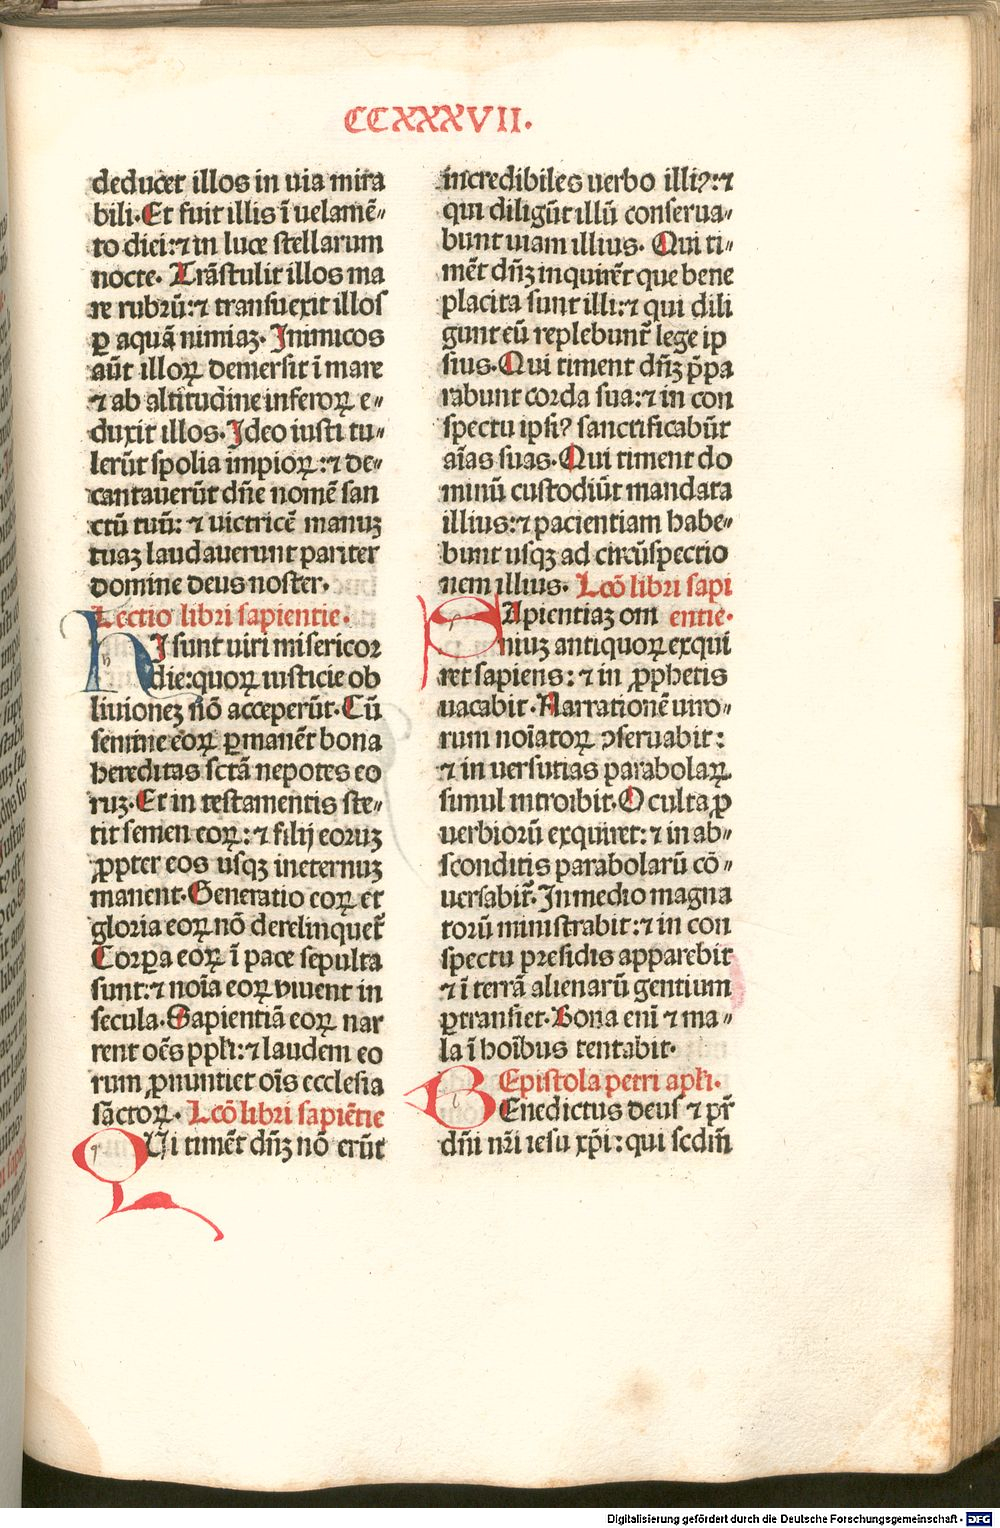 CCXXXVII.
deducet illos in uia mira
bili. Et fuit illis ī uelamē-
to diei: ⁊ in luce stellarum
nocte. Trāstulit illos ma
re rubrū: ⁊ transuexit illos
ꝑ aquā nimiaꝫ. Inimicos
aūt illoꝝ demersit ī mare
⁊ ab altitudine inferoꝝ e-
duxit illos. Ideo iusti tu-
lerūt spolia impioꝝ: ⁊ de-
cantauerūt dn̄e nomē san
ctū tuū: ⁊ uictricē manuꝫ
tuaꝫ laudauerunt pariter
domine deus noster.
Lectio libri sapientie.
HI sunt uiri misericor
die: quoꝝ iusticie ob
liuioneꝫ nō acceperūt. Cū
semine eoꝝ ꝑmanēt bona
hereditas sctā nepotes eo
ruꝫ. Et in testamentis ste-
tit semen eoꝝ: ⁊ filij eoruꝫ
ꝓpter eos usqꝫ ineternuꝫ
manent. Generatio eoꝝ et
gloria eoꝝ nō derelinquet᷑
Corꝑa eoꝝ ī pace sepulta
sunt: ⁊ noīa eoꝝ viuent in
secula. Sapientiā eoꝝ nar
rent oēs ppl̄i: ⁊ laudem eo
rum ꝓnuntiet oīs ecclesia
sāctoꝝ. Lcō libri sapiētie
QUi timēt dn̄ꝫ nō erūt
incredibiles uerbo illiꝰ: ⁊
qui diligūt illū conserua-
bunt uiam illius. Qui ti-
mēt dn̄ꝫ inquirēt que bene
placita sunt illi: ⁊ qui dili
gunt eū replebunt᷑ lege ip
sius. Qui timent dn̄ꝫ p̄pa
rabunt corda sua: ⁊ in con
spectu ipsiꝰ sanctificabūt
aīas suas. Qui timent do
minū custodiūt mandata
illius: ⁊ pacientiam habe-
bunt usqꝫ ad circūspectio
nem illius. Lcō libri sapi
SApientiaꝫ om entie.
niuꝫ antiquoꝝ exqui
ret sapiens: ⁊ in ꝓphetis
uacabit. Narrationē uiro-
rum noīatoꝝ ꝯseruabit:
⁊ in uersutias parabolaꝝ
simul introibit. Occulta ꝓ
uerbiorū exquiret: ⁊ in ab-
sconditis parabolarū cō-
uersabit᷑. In medio magna
torū ministrabit: ⁊ in con
spectu presidis apparebit
⁊ ī terrā alienarū gentium
ꝑtransiet. Bona enī ⁊ ma-
la ī hoībus tentabit.
Epistola petri apl̄i.
BEnedictus deus ⁊ pr̄
dn̄i nr̄i iesu xp̄i: qui scdm̄
q
h
s
b
Digitalisierung gefördert durch die Deutsche Forschungsgemeinschaft - DFG